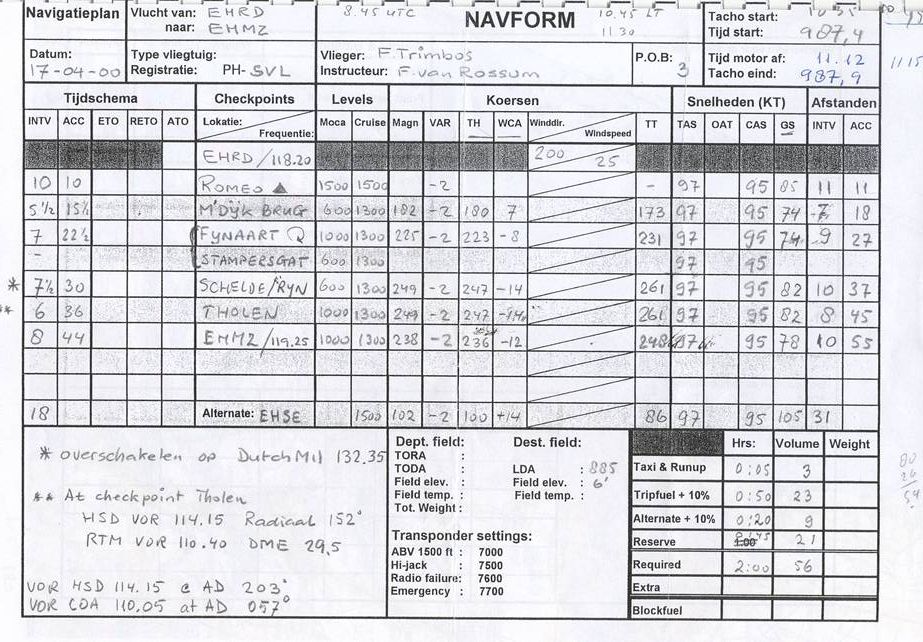 Navigatieplan Vlucht van: EHRD 8.45 UTC NAVFORM 10.45 LT Tacho start:
naar: EHMZ 11 30 Tijd start: 987,4
Datum: Type vliegtuig: Vlieger: F. Trimbos P.O.B: 3 Tijd motor af: 11.12 11 15
17-04-00 Registratie: PH-SVL Instructeur: F. van Rossum Tacho eind: 987,9
Tijdschema Checkpoints Levels Koersen Snelheden (KT) Afstanden
INTV ACC ETO RETO ATO Lokatie: Frequentie: Moca Cruise Magn VAR TH WCA Winddir. Windspeed TT TAS OAT CAS GS INTV ACC
EHRD /118.20 200 25
10 10 ROMEO ▲ 1500 1500 -2 - 97 95 85 11 11
5½ 15½ M'DIJK BRUG 600 1300 182 -2 180 7 173 97 95 74 7 18
7 22½ FYNAART 1000 1300 225 -2 223 -8 231 97 95 74 9 27
- STAMPERSGAT 600 1300 97 95
* 7½ 30 SCHELDE/RYN 600 1300 249 -2 247 -14 261 97 95 82 10 37
** 6 36 THOLEN 1000 1300 249 -2 247 -14 261 97 95 82 8 45
8 44 EHMZ /119.25 1000 1300 238 -2 236 -12 248 97 95 78 10 55
18 Alternate: EHSE 1500 102 -2 100 +14 86 97 95 105 31
* overschakelen op Dutch Mil 132.35
** At checkpoint Tholen
HSD VOR 114.15 Radiaal 152°
RTM VOR 110.40 DME 29,5
VOR HSD 114.15 @ AD 203°
VOR COA 110,05 at AD 057°
Dept. field: Dest. field:
TORA :
TODA : LDA : 885
Field elev. : Field elev. : 6'
Field temp. : Field temp. :
Tot. Weight :
Transponder settings:
ABV 1500 ft : 7000
Hi-jack : 7500
Radio failure: 7600
Emergency : 7700
Hrs: Volume Weight
Taxi & Runup 0:05 3
Tripfuel + 10% 0:50 23
Alternate + 10% 0:20 9
Reserve 1:00 0:45 21
Required 2:00 56
Extra
Blockfuel